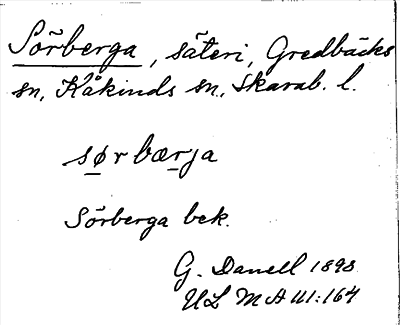 Sörberga, säteri, Gredbäcks
sn, Kåkinds sn, Skarab. l.
sørbærja
Sörberga bek.
G. Danell 1898
ULMA III:164